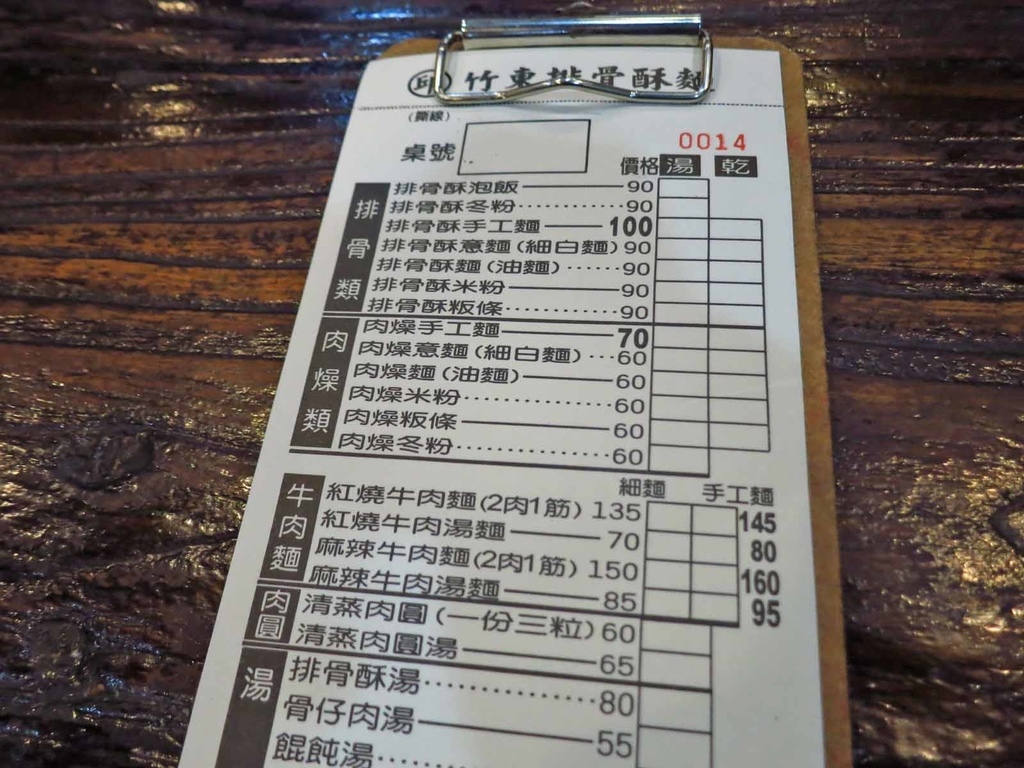 邱 竹東排骨酥麵
(撕線)
桌號
0014
價格 湯 乾
排骨類
排骨酥泡飯 90
排骨酥冬粉 90
排骨酥手工麵 100
排骨酥意麵(細白麵) 90
排骨酥麵(油麵) 90
排骨酥米粉 90
排骨酥粄條 90
肉燥類
肉燥手工麵 70
肉燥意麵(細白麵) 60
肉燥麵(油麵) 60
肉燥米粉 60
肉燥粄條 60
肉燥冬粉 60
細麵 手工麵
牛肉麵
紅燒牛肉麵(2肉1筋) 135 145
紅燒牛肉湯麵 70 80
麻辣牛肉麵(2肉1筋) 150 160
麻辣牛肉湯麵 85 95
肉圓
清蒸肉圓(一份三粒) 60
清蒸肉圓湯 65
湯
排骨酥湯 80
骨仔肉湯 55
餛飩湯